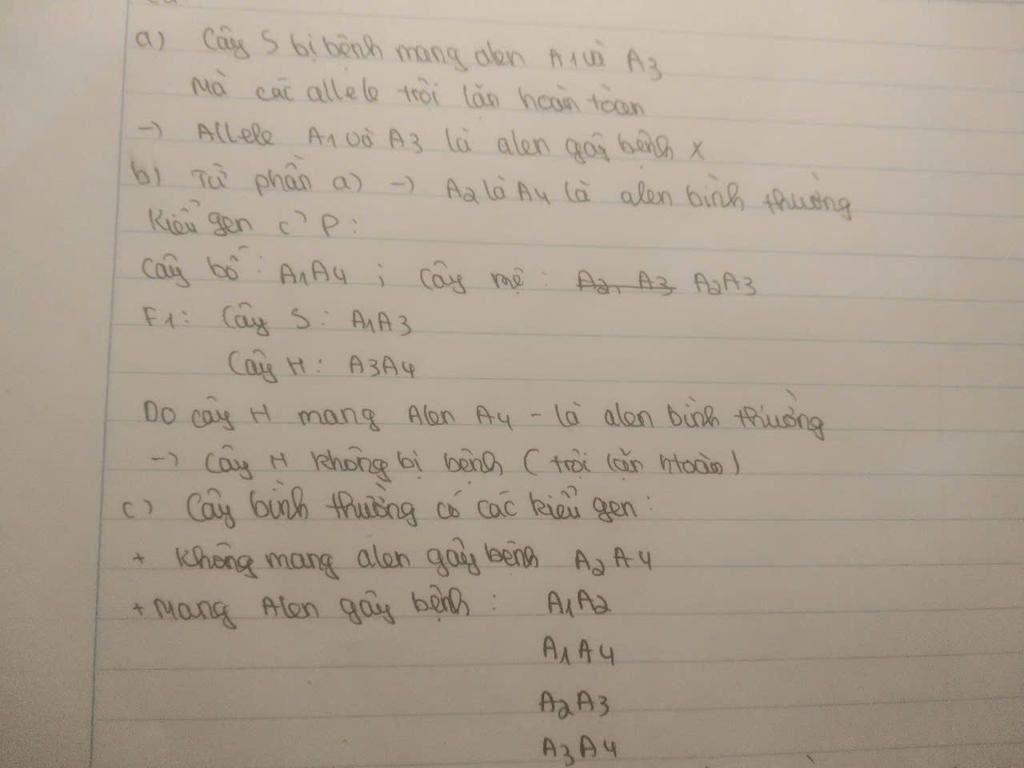 a) Cây S bị bệnh mang alen A1 và A3
Mà các allele trội lặn hoàn toàn
→ Allele A1 và A3 là alen gây bệnh x
b) Từ phần a) → A2 là A4 là alen bình thường
Kiểu gen P:
Cây bố: A1A4; Cây mẹ: A2, A3 A2A3
F1: Cây S: A1A3
Cây H: A3A4
Do cây H mang Alen A4 - là alen bình thường
→ Cây H không bị bệnh (trội lặn htoàn)
c) Cây bình thường có các kiểu gen:
+ Không mang alen gây bệnh A2A4
+ Mang Alen gây bệnh: A1A2
A1A4
A2A3
A3A4